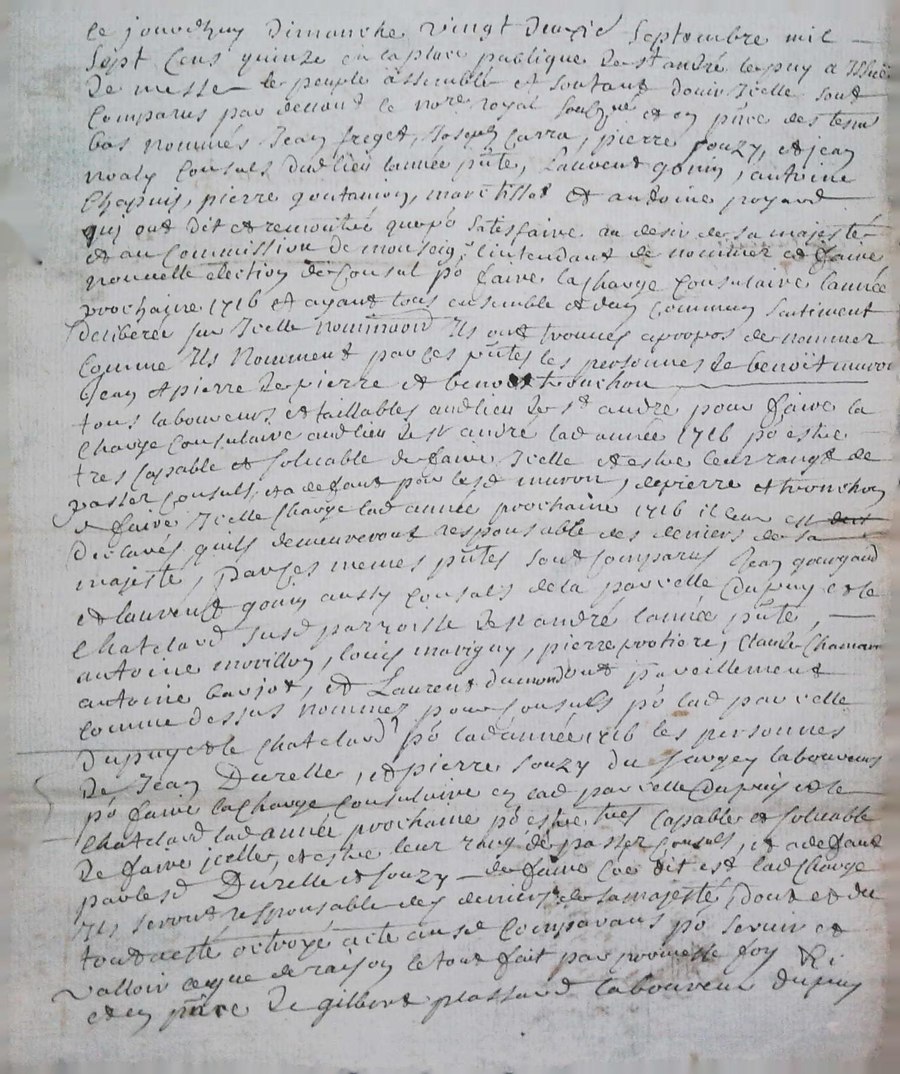 ce jourdhuy dimanche vingt deuxie septembre mil
sept cens quinze en la place publique de st andré le puy a lissüe
de messe le peuple assemblé et sortant douir icelle sont
comparus par devant le nore royal soubzné et en pñce des tesm
bas nommés Jean freget, Joseph Carra, pierre souzy, et jean
noaly consuls dud lieu lannée pñte, Laurent gonin, antoine
Chapuis, pierre goutanion, marc tissot et andoine poyard
qui ont dit et remontré que po satesfaire au desir de sa majesté
et au Commission de monseigr lintendant de nommer et faire
nouvelle élection de Consul po faire la charge Consulaire lannée
prochaine 1716 et ayant tous ensemble et dun commun sentiment
deliberée sur Icelle nominaõn Ils ont trouvés apropos de nommer
comme Ils Nomment par ces pñtes les personnes de benoit muron
Jean et pierre depierre et benoit tronchon
tous laboureurs et taillables aud lieu de st andré pour faire la
charge consulaire aud lieu de st andré lad année 1716 po estre
tres capable et soluable de faire Icelle et estre leur rangt de
passer consuls, et a defaut par lesd muron, depierre et tronchon
de faire Icelle charge lad année prochaine 1716 il leur est
declarés quils demeureront responsable des deniers de sa
majesté, par ces memes pñtes sont comparus Jean gourgaud
et laurent gonin aussy consuls de la parcelle dupuy et le
chatelard susd parroisse de st andré lannée pñte,
antoine morillon, louis marigny, pierre protiere, Claude Chaman
antoine barjot, et Laurent dumond ont pareillement
comme dessus nommés pour consuls po lad parcelle
dupuy et le chatelard po lad année 1716 les personnes
de Jean Durelle, et pierre souzy du laboureurs
po faire la charge consulaire en lad parcelle dupuis et le
chatelard lad année prochaine po estre tres capable et soluable
de faire icelle, et estre leur rangt de passer consuls, et a defaut
par lesd Durelle et souzy de faire coe dit est lad charge
Ils seront responsable des deniers de sa majesté, dont et du
tout a esté octroyé acte ausd comparans po servir et
valloir ce que de raison le tout fait par promesse foy &ci
et en pñce de gilbert plassard laboureur dupuy